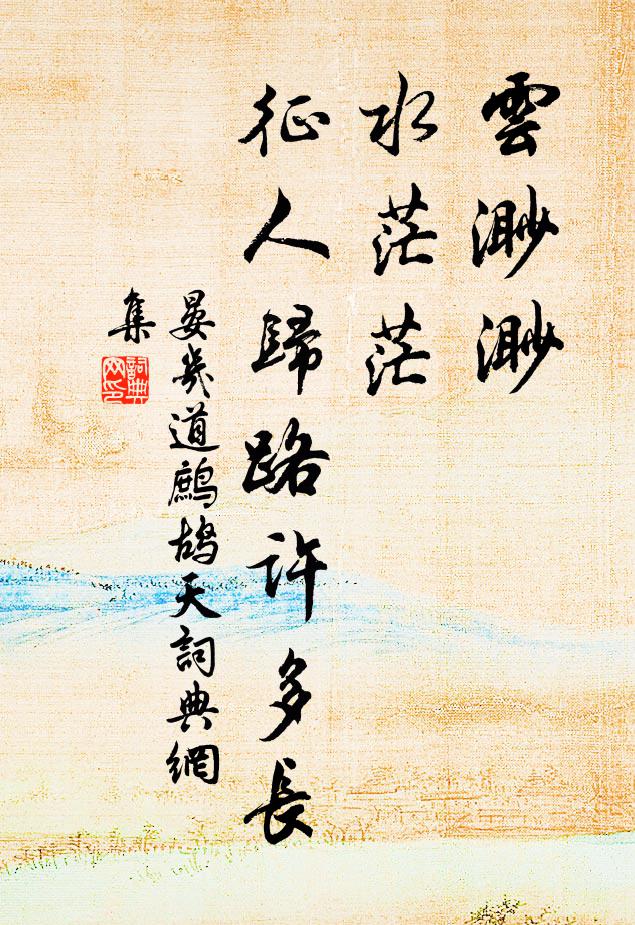 雲渺渺
水茫茫
征人歸路許多長
晏幾道鷓鴣天詞典網
集
詞典
网印